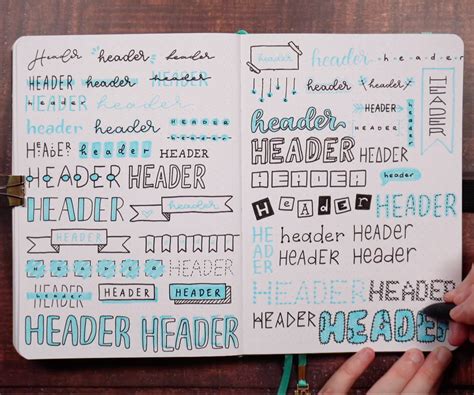 Header header Header
HEADER header HEADER
HEADER header
header header HEADER
HEADER header HEADER
HEADER HEADER
HEADER header
HEADER
HEADER
HEADER header HEADER HEADER
HEADER HEADER
HEADER header header
header header
HEADER
HEADER
header HEADER header
HEADER
HEADER HEADER
HEADER header
Header HEADER
HEADER header HEADER
header HEADER
HEADER HEADER
HEADER HEADER